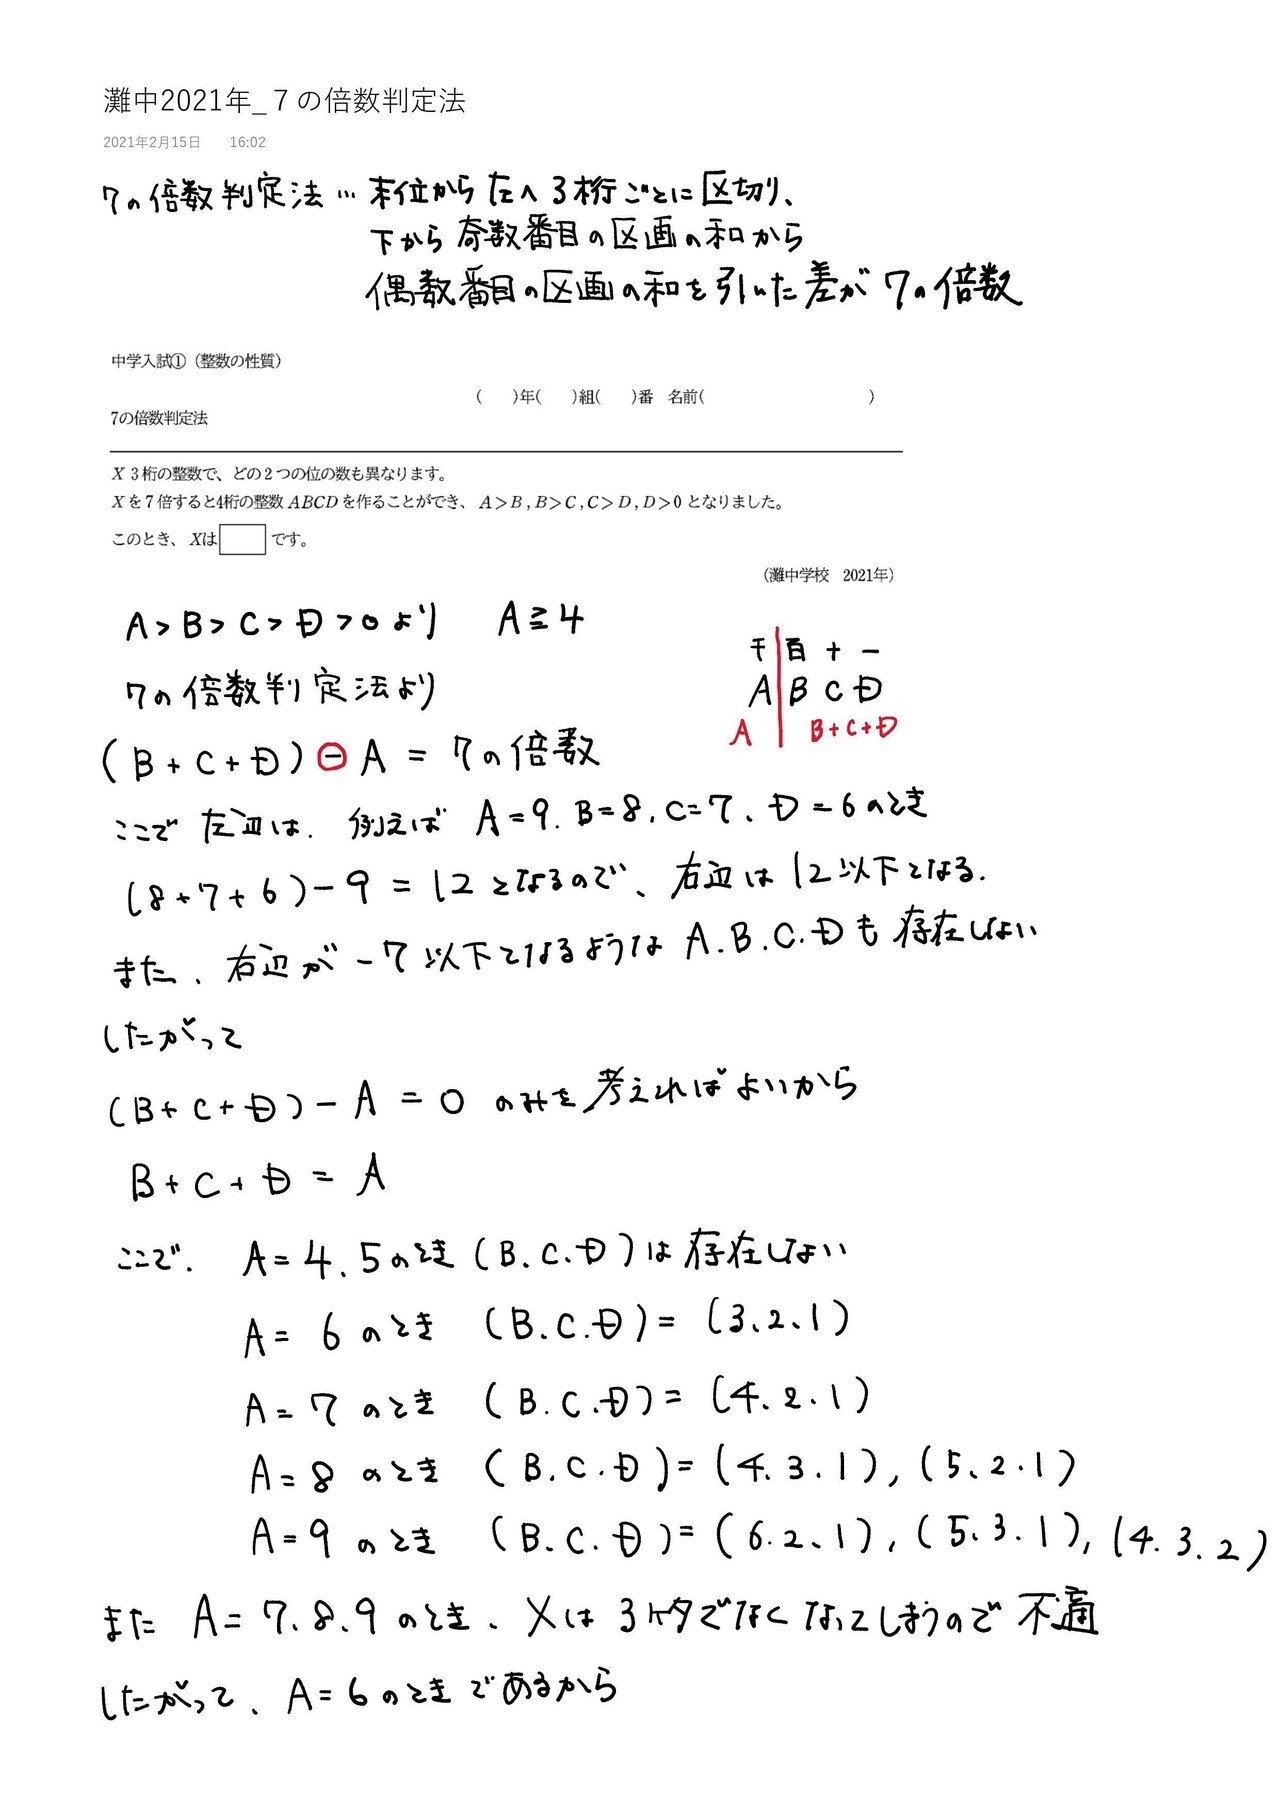 灘中2021年_７の倍数判定法
2021年2月15日 16:02
7の倍数判定法… 末位から左へ3桁ごとに区切り、
下から奇数番目の区画の和から
偶数番目の区画の和を引いた差が7の倍数
中学入試①（整数の性質）
( )年( )組( )番 名前( )
7の倍数判定法
X 3桁の整数で、どの2つの位の数も異なります。
Xを7倍すると4桁の整数ABCDを作ることができ、A>B,B>C,C>D,D>0となりました。
このとき、Xは です。
（灘中学校 2021年）
A>B>C>D>0より A≧4
千 百 十 一
7の倍数判定法より
A B C D
A B+C+D
(B+C+D)-A=7の倍数
ここで左辺は. 例えば A=9. B=8, C=7、D=6のとき
(8+7+6)-9=12となるので、右辺は12以下となる.
また、右辺が-7以下となるような A.B.C.Dも存在しない
したがって
(B+C+D)-A=0のみを考えればよいから
B+C+D=A
ここで. A=4.5のとき(B.C.D)は存在しない
A=6のとき (B.C.D)=(3.2.1)
A=7のとき (B.C.D)=(4.2.1)
A=8のとき (B.C.D)=(4.3.1),(5.2.1)
A=9のとき (B.C.D)=(6.2.1),(5.3.1),(4.3.2)
また A=7.8.9のとき、Xは3ケタでなくなってしまうので不適
したがって、A=6のときであるから